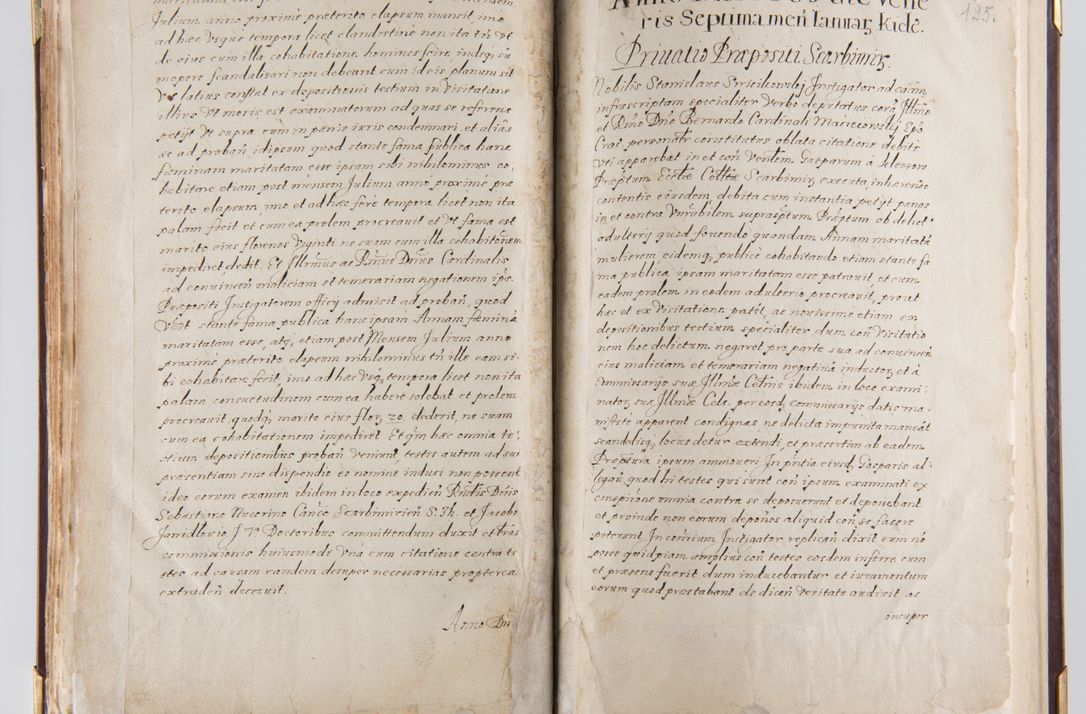 Julium anno proximo præterito elapsum mansit imo
ad hæc vsque tempora licet clandestine non ita tn̄ vt
de eius cum illa cohabitatione homines scire indeq; su
mopere scandalisari non debeant cum id eis planum sit
vt latius constat ex depositionis testium in Visitatione
illius vt moris est examinatorum ad quas se referens
petijt vt supra eum in pænis iuris condemnari et aliàs
se ad proban̄ idipsum quod stante fama publica hanc
fæminam maritatam esse ipsam sibi nihilominus co,
habitare etiam post mensem Julium anno proximè præ
terito elapsum, imo et ad hæc fere tempora licet non ita
palam fecit et cum ea prolem procreauit et vt fama est
marito eius florenos viginti ne suam cum illa cohabitōnem
impediret dedit. Et Illrīmus ac Rn̄dus Dn̄us Cardinalis
ad conuincen̄ maliciam et temerariam negationem ips.
Præpositi Instigatorem officij admisit ad proban̄, quod
videlt. stante fama publica hanc ipsam Annam fæminā
maritatam esse, atq; etiam post Mensem Julium anno
proximè præterito elapsum nihilominus tn̄ ille eam si,
bi cohabitare fecit, imo ad hæc vsq; tempora licet non ita
palam consuetudinem cum ea habere solebat et prolem
procreauit quodq; marito eius flor. 20. dederit, ne suam
cum ea cohabitationem impediret Et qm̄ hæc omnia te,
stium depositionibus proban̄ veniunt, testes autem ad sui
præsentiam sine dispendio eo nomine induci non possent
ideo eorum examen ibidem in loco expedien̄ Rn̄dis Dn̄is
Sebastiano Nucerino Canco Scarbimirien̄ S. Th. et Jacobo
Janidlovio J. V. Doctoribus committendum duxit et trās
commissionis huiusmodi vna cum citatione contra te
stes ad causam eandem desuper necessarias propterea
extraden̄ decreuit.
Anno Dn̄i
195.
ris Septima men̄ Januarij Kielc.
Priuatio Præpositi Scarbimirj
Nobilis Stanislaus Instigator ad cām
infrascriptam specialiter verbo deputatus corā Illmo
et Rmo Dno Bernardo Cardinali Macieiowskj Epō
Crac personalr̄ constitutus oblata citatione debitè
vti apparebat in et con̄ Venlem. Gasparum à
Præptum. Ecclæ Colltæ Scarbimirj executa, inhærendo
contentis eiusdem, debita cum instantia petijt pænas
in et contra Vn̄rabilem supraspt̄um Præptum ob delict
adulterij quod fouendo quandam Annam maritatā
mulierem eidemq; publicè cohabitando etiam stante fa
ma publica ipsam maritatam esse patrauit, et cum
eadem prolem in eodem adulterio procreauit, prout
hæc et ex Visitatione patēt, ac nouissime etiam ex
depositionibus testium specialiter dum con̄ Visitatio
nem hoc delictum negaret pro parte sua ad conuincen̄
eius maliciam et temerariam negatiuā inductor. et à
Commissarijs suæ Illmæ Cels̄nis ibidem in loco exami,
nator. suæ Illmæ Cels. per eosd; commissarijs datis ma,
nifestè apparent condignas ne delicta impunita maneāt
scandalisq; locus detur extendi, et præsertim ab eadem
Præptura ipsum ammoueri In pn̄tia eiusd; Gasparis al,
legan̄ quod hi testes qui sunt con̄ ipsum examinati ex
conspiratione omnia contra se deposuerunt et deponebant
et proinde non eorum depōnes aliquid con̄ se facere
poterunt In contrium Instigator replican̄ dixit eum nō
posse quidpiam amplius con̄ testes eosdem inferre cum
et præsens fuerit dum inducebantur et iuramentum
eorum quod præstabant de dicen̄ veritate audiuit ac
insuper